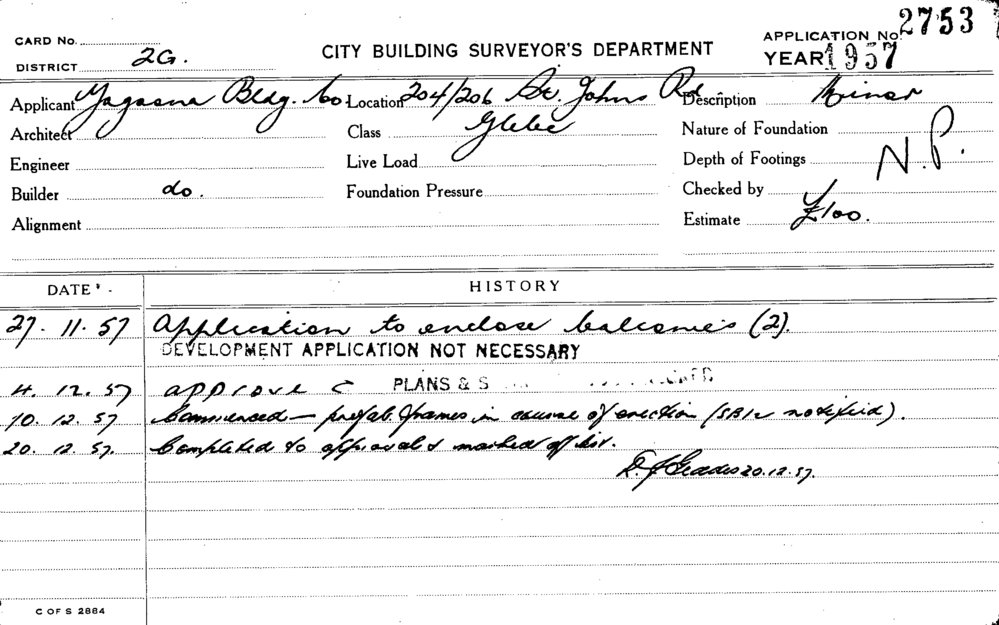 CARD No.
DISTRICT 2G.
CITY BUILDING SURVEYOR'S DEPARTMENT
APPLICATION No. 2753
YEAR 1957
Applicant Bldg. Co. Location 204/206 St. Johns Rd Description Minor
Architect Class Glebe Nature of Foundation
Engineer Live Load Depth of Footings N.P.
Builder do. Foundation Pressure Checked by
Alignment Estimate £100.
DATE HISTORY
27. 11. 57 Application to enclose balconies (2).
DEVELOPMENT APPLICATION NOT NECESSARY
4. 12. 57 approve C PLANS & S
10. 12. 57 Commenced — prefab frames in course of erection (SBIr notified).
20. 12. 57. Completed to approval & marked off list.
20.12.57.
C OF S 2884